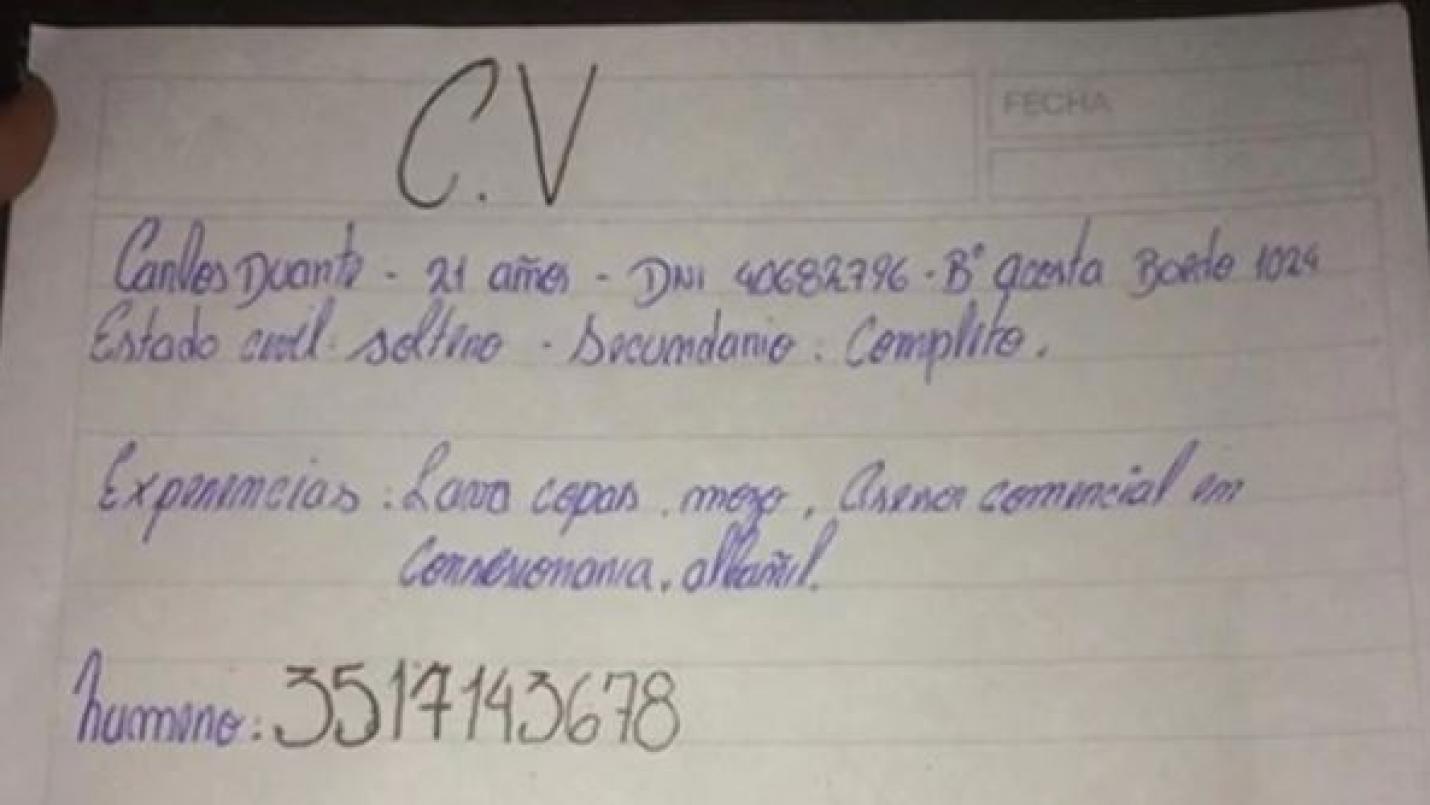 C.V
FECHA
Carlos Duarte - 21 años - DNI 40682796 - B° acosta Baede 1024
Estado civil: soltero - Secundario: Completo.
Experiencias: Lava copas, mozo, Asesor comercial en
Concesionaria, albañil.
numero: 3517143678